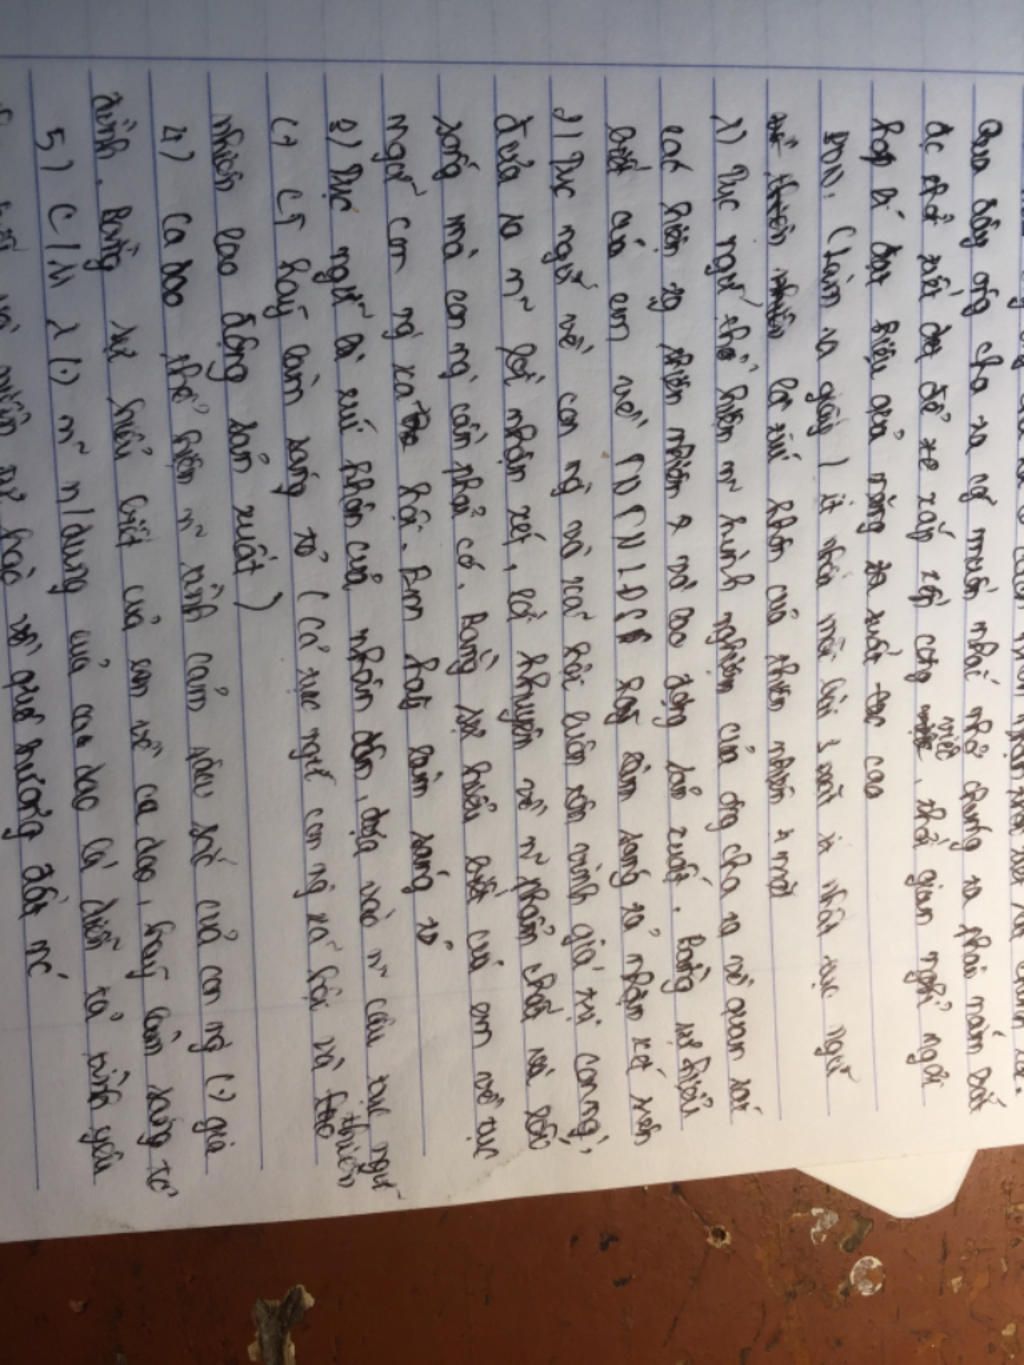 Qua đây ông cha ta có muốn nhắc nhở chúng ta phải nắm bắt
đc thời tiết để sắp xếp công việc, thời gian nghỉ ngơi
hợp lí đạt hiệu quả năng ta xuất cao
BDVN. (Làm ra giấy) ít nhất mỗi bài 3 ít nhất tục ngữ
thiên nhiên là túi khôn của thiên nhiên
1) Tục ngữ thể hiện n~ kinh nghiệm của ông cha ta về quan sát
các hiện tg thiên nhiên & lao động sản xuất. Bằng sự hiểu
biết của em về hãy làm sáng tỏ nhận xét trên
2) Tục ngữ về con ng và xã hội luôn tôn vinh giá trị con ng,
đưa ra n~ lời nhận xét, lời khuyên về n~ phẩm chất và lối
sống mà con ng cần phải có. Bằng sự hiểu biết của em về tục
ngữ con ng xã hội. Em hãy làm sáng tỏ
3) Tục ngữ là túi khôn của nhân dân, dựa vào n~ câu tục ngữ
(+) CM hãy làm sáng tỏ (Cả tục ngữ con ng xã hội và thiên
nhiên lao động sản xuất)
4) Ca dao thể hiện n~ tình cảm sâu sắc của con ng (.) gia
đình. Bằng sự hiểu biết của em về ca dao, hãy làm sáng tỏ
5) C/M 1 (.) n~ n/dung của ca dao là diễn tả tình yêu
niềm tự hào về quê hương đất nc